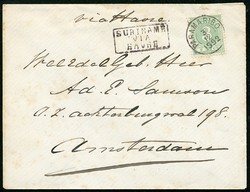 via Havre
SURINAME
VIA
HAVRE
PARAMARIBO
1892
WelEdelGeb. Heer
Ad. E. Samson
O.Z. Achterburgwal 198.
Amsterdam